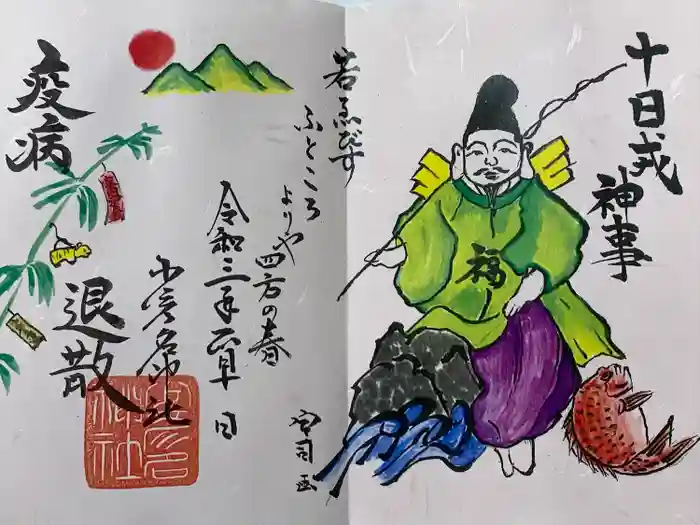 十日戎
神事
福
若ゑびす
ふところ
よりや
四方の春
令和三年正月 日
宮司画
少彦名神社
疫病
退散